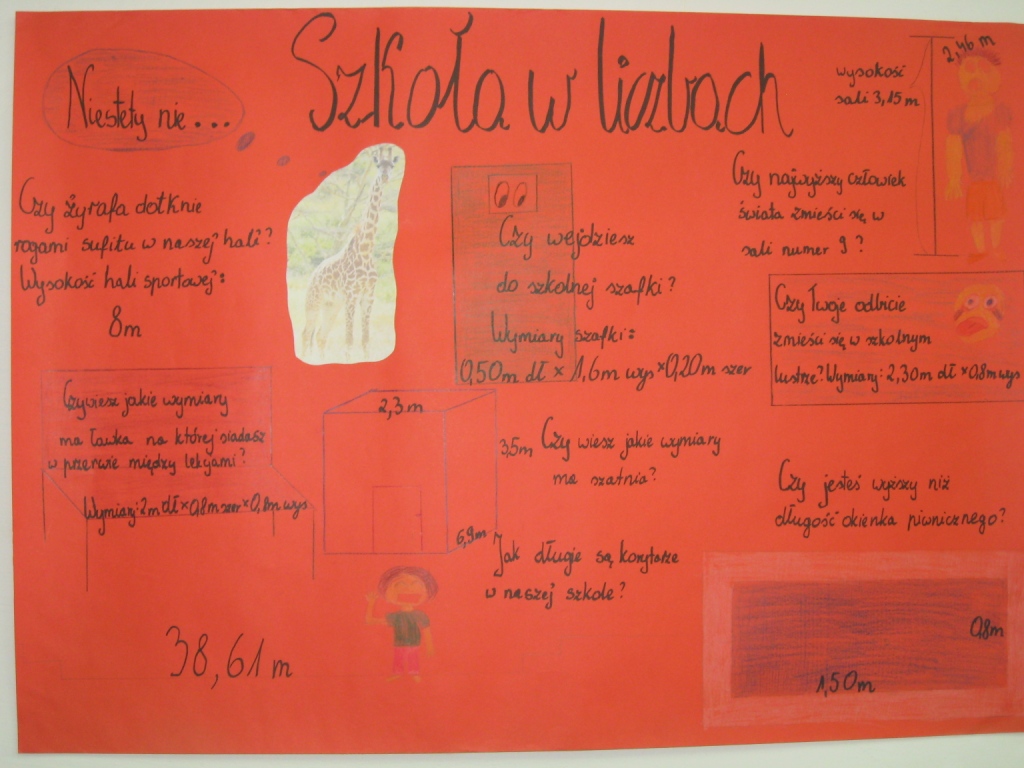 Szkoła w liczbach
Niestety nie...
Czy żyrafa dotknie
rogami sufitu w naszej hali?
Wysokość hali sportowej:
8m
Czy wejdziesz
do szkolnej szafki?
Wymiary szafki:
0,50m dł × 1,6m wys × 0,20m szer
2,46 m
wysokość
sali 3,15 m
Czy najwyższy człowiek
świata zmieści się w
sali numer 9?
Czy Twoje odbicie
zmieści się w szkolnym
lustrze? Wymiary: 2,30m dł × 0,8m wys
Czy wiesz jakie wymiary
ma ławka na której siadasz
w przerwie między lekcjami?
Wymiary: 2m dł × 0,8m szer × 0,8m wys
2,3 m
3,5m
6,9m
Czy wiesz jakie wymiary
ma szatnia?
Jak długie są korytarze
w naszej szkole?
38,61 m
Czy jesteś wyższy niż
długość okienka piwnicznego?
0,8m
1,50m